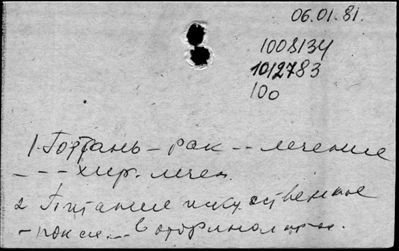 06.01.81.
1008134
1012783
100
1. Гортань – рак -- лечение
--- хир. лечен.
2 Питание искусственное